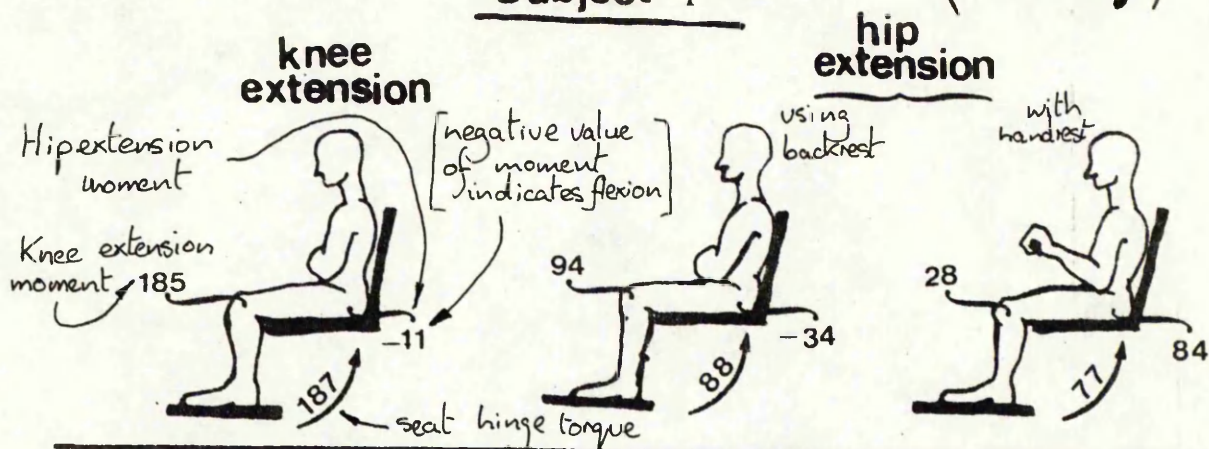 knee
extension
hip
extension
Hip extension
moment
[negative value
of moment
indicates flexion]
using
backrest
with
handrest
Knee extension
moment
185
-11
187
seat hinge torque
94
-34
88
28
84
77